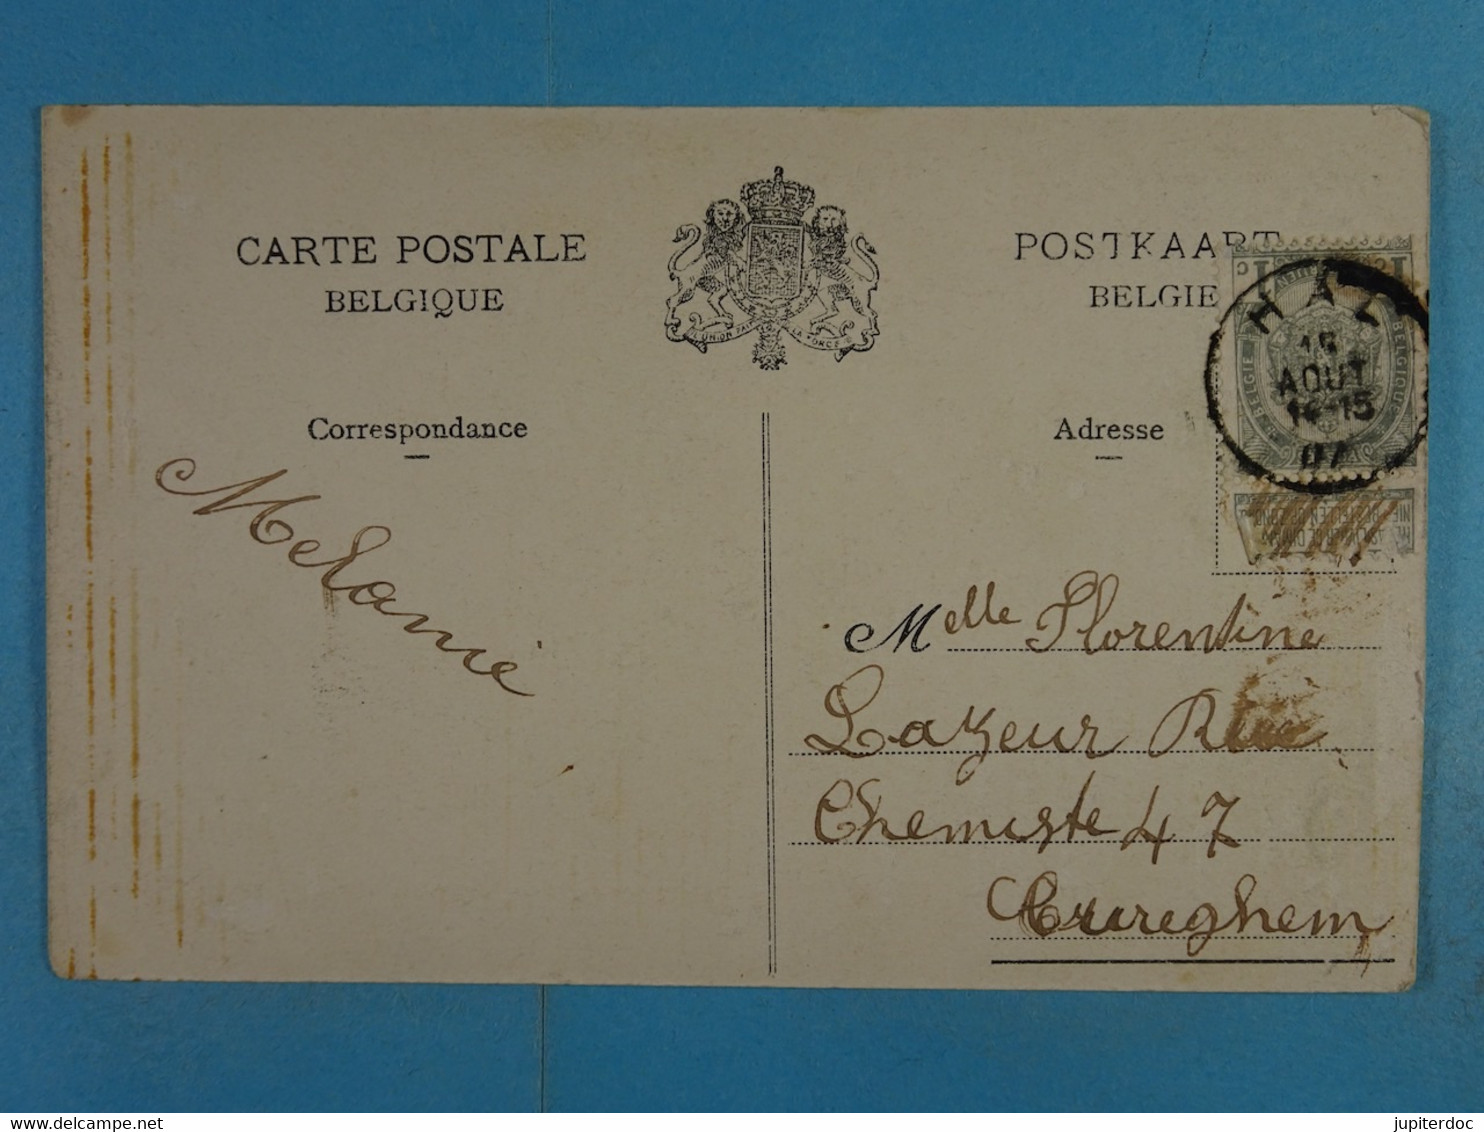 CARTE POSTALE
BELGIQUE
POSTKAART
BELGIE
L'UNION FAIT LA FORCE
HAL
15
AOUT
14-15
07
Correspondance
Adresse
Melanie
Melle Florentine
Lazeur Rue
Chemiste 47
Cureghem
www.delcampe.net
jupiterdoc